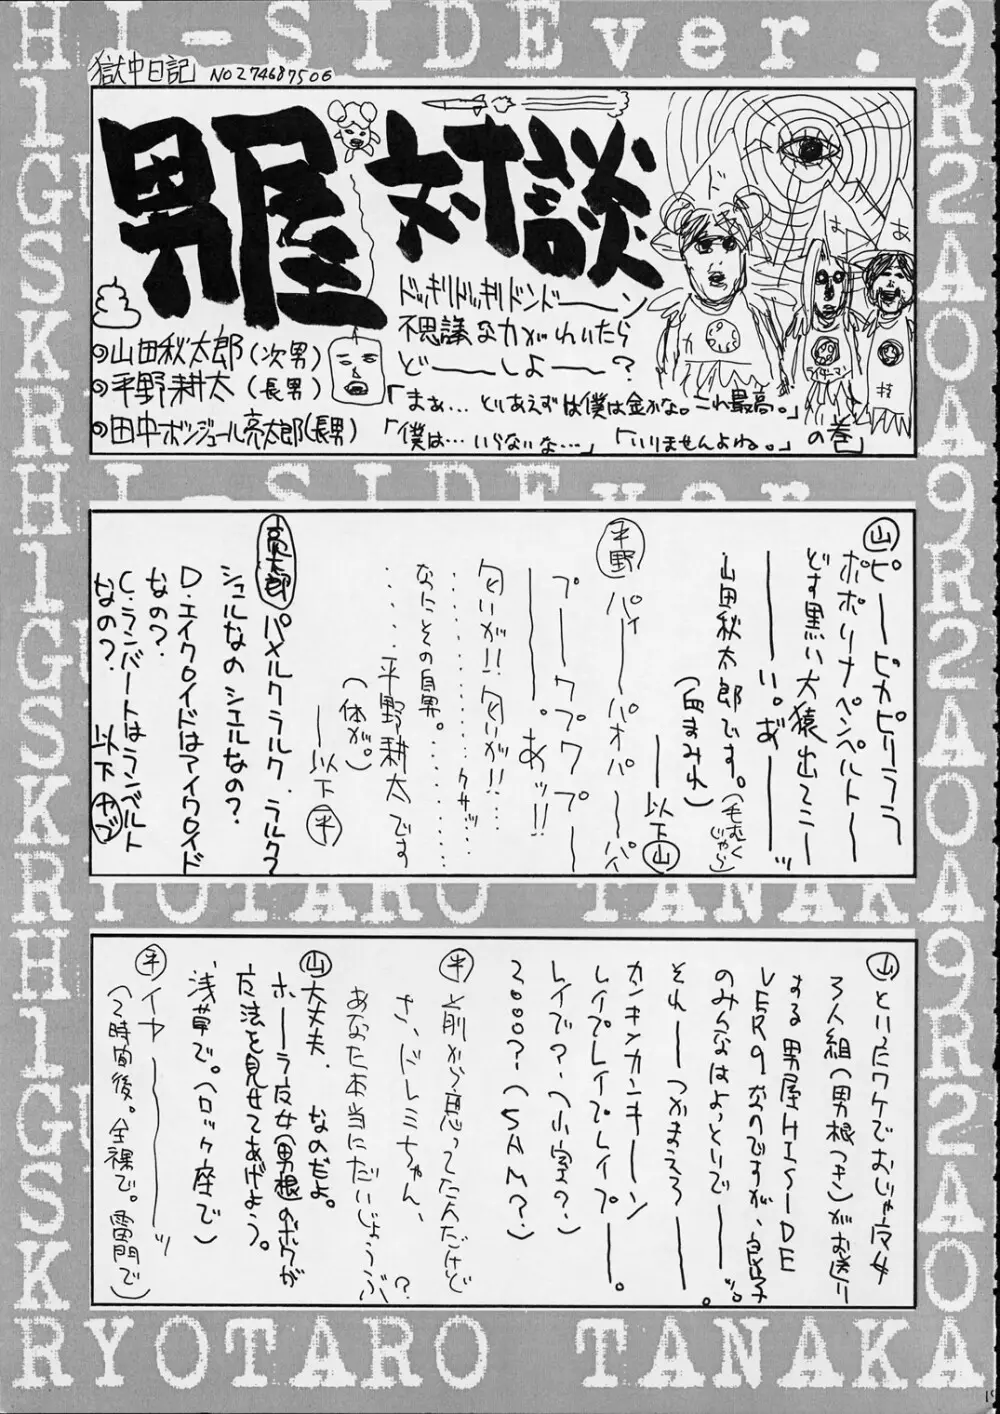 HI-SIDEver.9
獄中日記 NO274687506
男屋対談
ドッキリドッキリドンドーーン
不思議な力がわいたら
どーーしよーー?
◎山田秋太郎(次男)
◎平野耕太(長男)
◎田中ボンジュール亮太郎(長男)
「まぁ…とりあえずは僕は金かな。これ最高。」
「僕は…いらないな…」「いりませんよね。」の巻
HI-SIDEver.
山 ピーーピカピリララ
ポポリナペンペルトーー
どす黒い大猿出てこー
ーーい。あ゛ーーッ
山田秋太郎です。(毛むくじゃら)
(血まみれ)
ー以下山
平野 パイーーパオパーーパイ
プーーワプワプーー
ーー。あッ!!
匂いが!!匂いが!!…
………クサッ……
なにその自男。………
....平野耕太です
(体が。)
ー以下平
亮太郎 パメルクラルク、ラルク?
シュルなのシエルなの?
D・エイクロイドはアイクロイド
なの?
C・ランバートはランベルト
なの? 以下ヤで
RYOTARO TANAKA
山 といったワケでおじゃ魔女
3人組(男根つき)がお送り
する男屋HISIDE
VER9なのですが、良い子
のみんなはよっといでーーッ。
それーーつかまえろーー。
カンキンカンキーーン
レイプレイプレイプーー。
レイブ?(小室?)
2000?(SAM?)
平 前から思ってたんだけど
さ、ドレミちゃん、
あなた本当にだいじょうぶ?
山 大丈夫、なのだよ。
ホーラ魔女(男根)のボクが
魔法を見せてあげよう。
浅草で。(ロック座で)
平 イヤーーーッ
(2時間後。全裸で。雷門で)
RYOTARO TANAKA